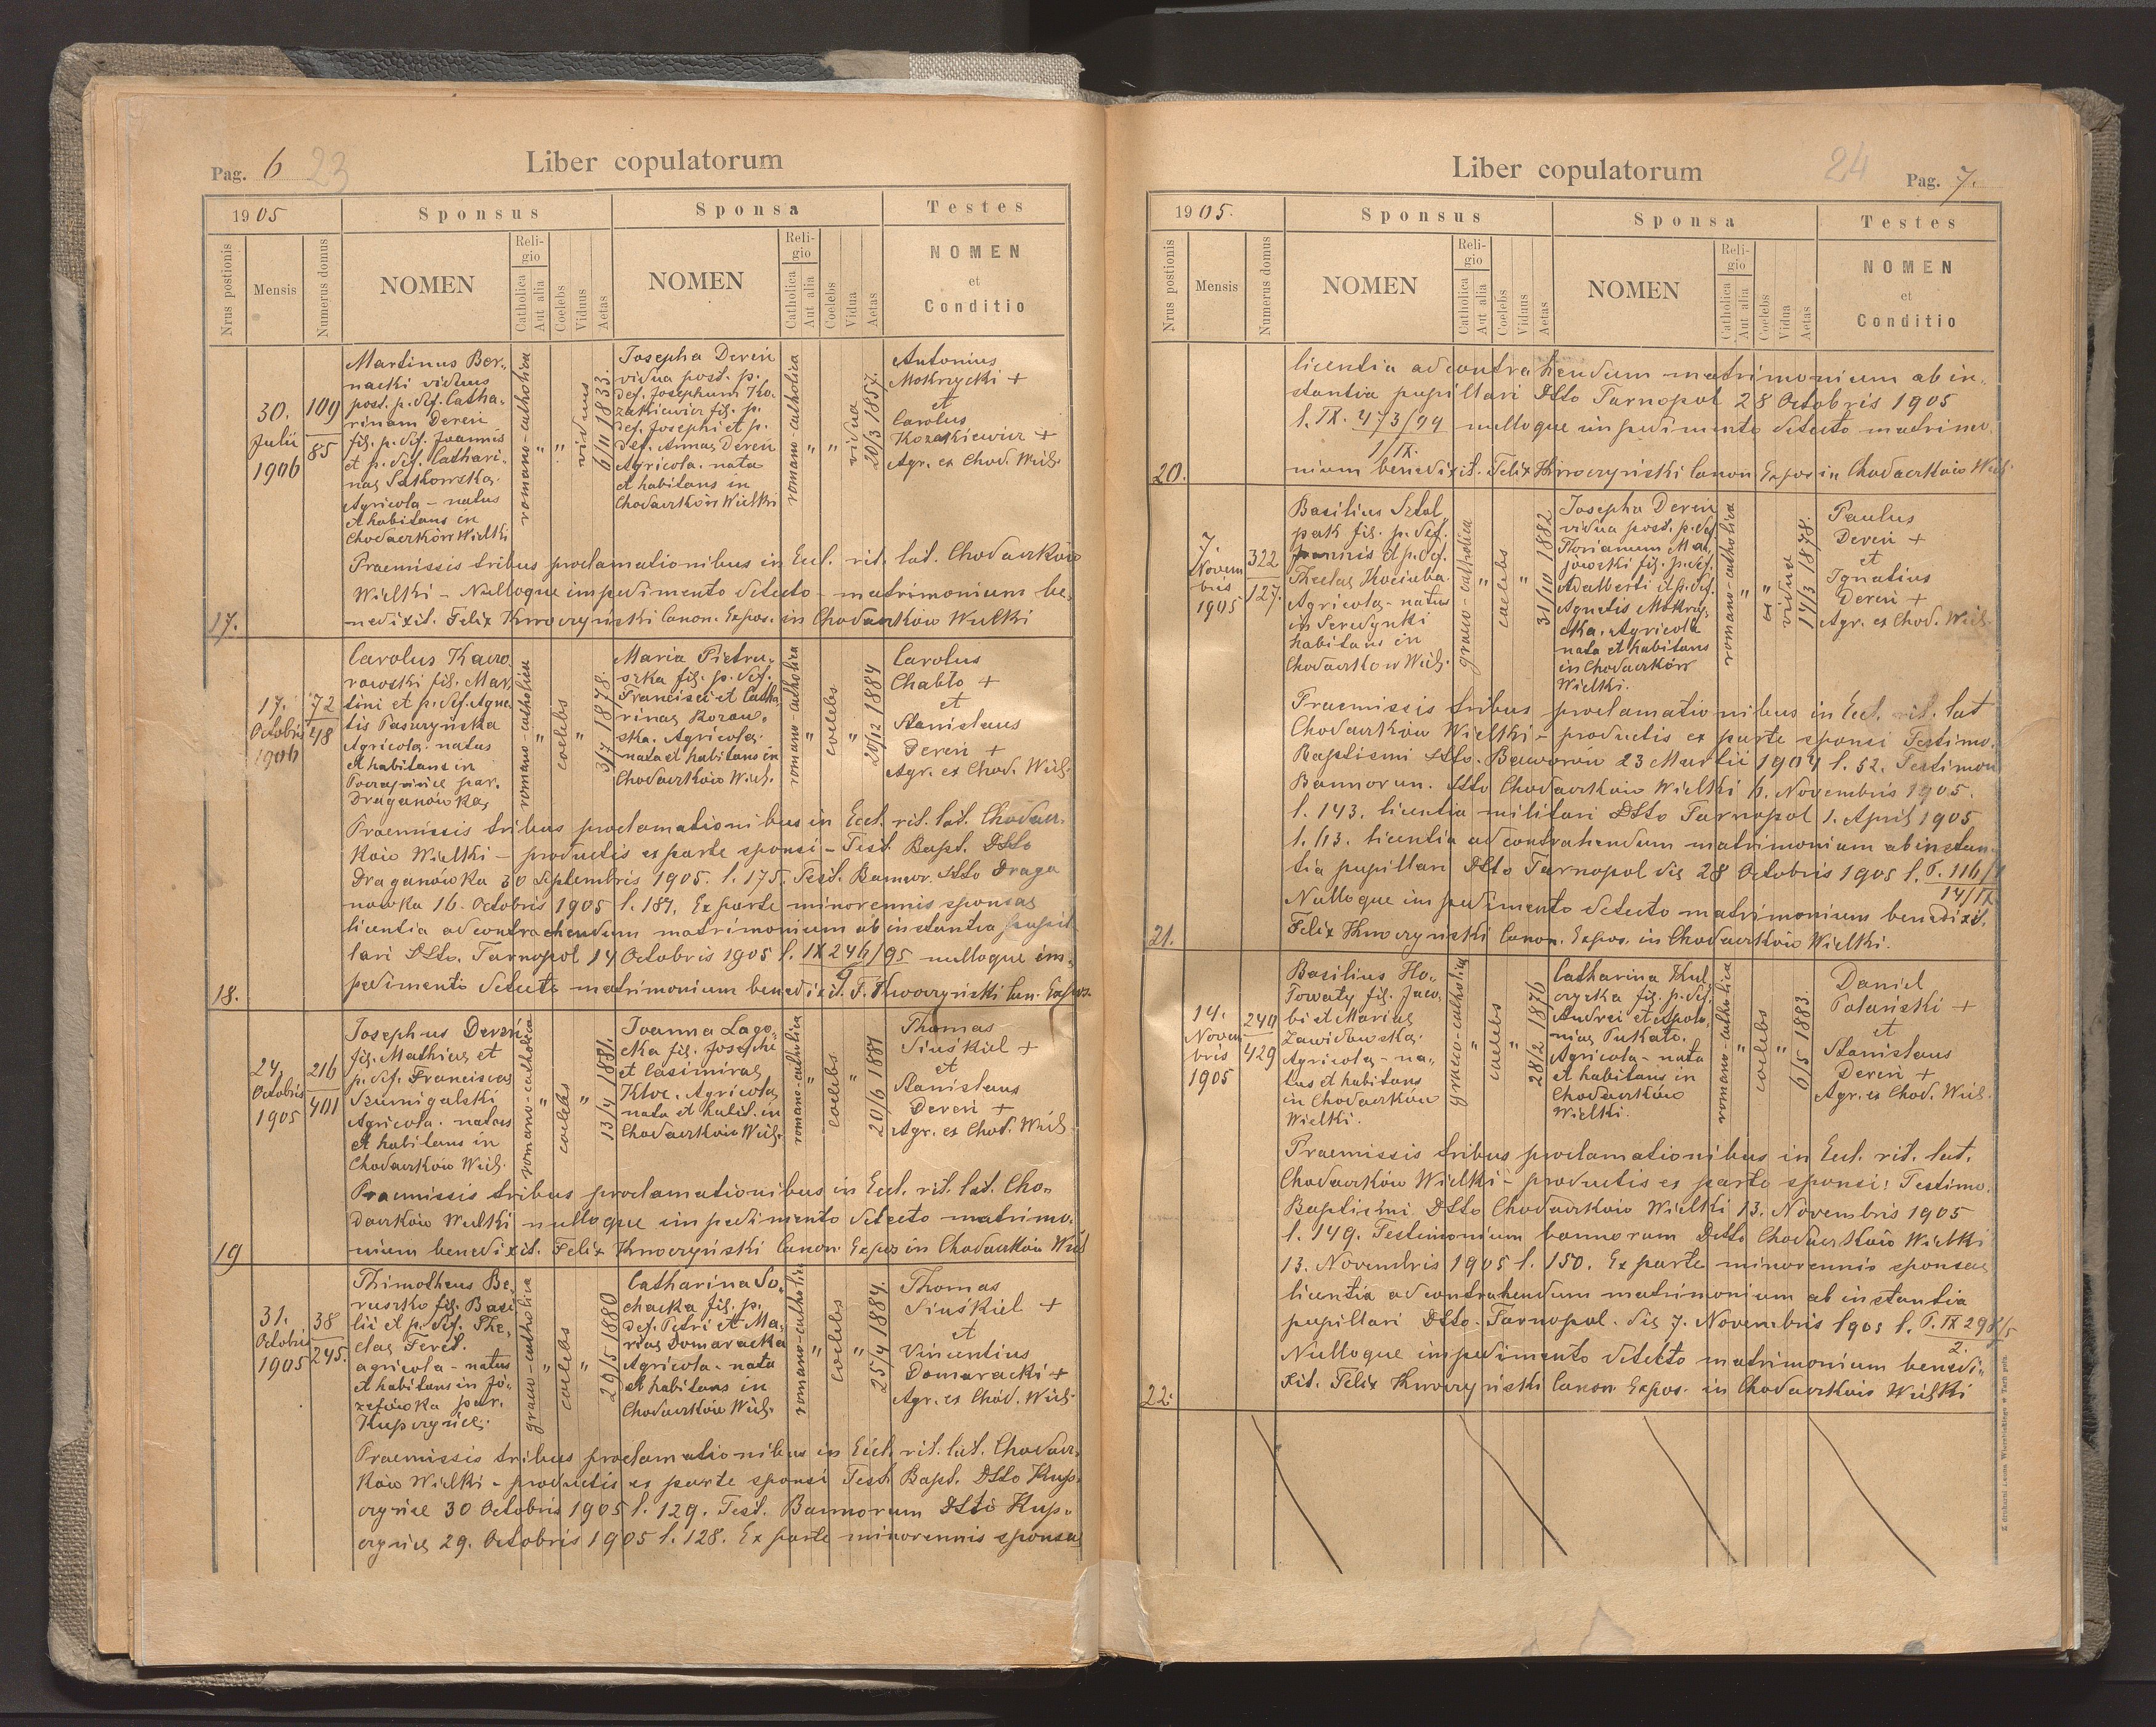 Pag. 6 23
Liber copulatorum
1905
Sponsus
Sponsa
Testes
Nrus postionis
Mensis
Numerus domus
NOMEN
Religio
Catholica
Aut alia
Coelebs
Viduus
Aetas
NOMEN
Religio
Catholica
Aut alia
Coelebs
Vidua
Aetas
NOMEN
et
Conditio
17.
30.
Julii
1906
109
85
Martinus Ber-
nacki viduus
post. p. def. Catha-
rinam Dereń
fil. p. def. Joannis
et p. def. Cathari-
nae
Agricola - natus
et habitans in
Chodaczków Wielki
romano-catholica
"
"
viduus
6/11 1833.
Josepha Dereń
vidua post. p.
def. Josephum Ko-
zakiewicz fil. p.
def. Josephi et p.
def. Annae Dereń
Agricola. nata
et habitans in
Chodaczków Wielki
romano-catholica
"
"
vidua
20/3 1857.
Antonius
Mokrzycki +
et
Carolus
Kozakiewicz +
Agr. ex Chod. Wiel.
Praemissis tribus proclamationibus in Eccl. rit. lat. Chodaczków
Wielki - Nulloque impedimento detecto - matrimonium be-
nedixit. Felix Kwoczyński Canon. Expos. in Chodaczków Wielki
18.
17.
Octobris
1906
72
48
Carolus Kaczo-
rowski fil. Mar-
tini et p. def. Agne-
tis Pasczyńska
Agricola. natus
et habitans in
Poczapińce par.
Draganówka
romano-catholica
"
coelebs
"
3/7 1878.
Maria Pietru-
szka fil. p. def.
Francisci et Catha-
rinae
Agricola.
nata et habitans in
Chodaczków Wiel.
romano-catholica
"
coelebs
"
20/12 1884
Carolus
Chabło +
et
Stanislaus
Dereń +
Agr. ex Chod. Wiel.
Praemissis tribus proclamationibus in Eccl. rit. lat. Chodacz-
ków Wielki - productis ex parte sponsi - Test. Bapt. Dtto
Draganówka 30 Septembris 1905. l. 175. Test. Bannor. dtto Draga
nówka 16. Octobris 1905 l. 187. Ex parte minorennis sponsae
licentia ad contrachendum matrimonium ab instantia pupil-
lari Dtto. Tarnopol 14 Octobris 1905 l. IX 246/95 nulloque im-
9
pedimento detecto matrimonium benedixit. F. Kwoczyński Can. Expos.
19
24.
Octobris
1905
216
401
Josephus Dereń
fil. Mathiae et
p. def. Franciscae
Szumigalski
Agricola. natus
et habitans in
Chodaczków Wiel.
romano-catholica
"
coelebs
"
13/4 1881.
Joanna Lago-
cka fil. Josephi
et Casimirae
Kloc. Agricola
nata et habit. in
Chodaczków Wiel.
romano-catholica
"
coelebs
"
20/6 1887
Thomas
Siuśkiel +
et
Stanislaus
Dereń +
Agr. ex Chod. Wiel.
Praemissis tribus proclamationibus in Eccl. rit. lat. Cho-
daczków Wielki nulloque impedimento detecto matrimo-
nium benedixit. Felix Kwoczyński Canon. Expos in Chodaczków Wiel
31.
Octobris
1905
38
245.
Thimotheus Be-
ruszko fil. Basi
lii et p. def. The-
clae Feret.
agricola - natus
et habitans in Jó-
zefówka par.
Kupczyńce.
graeco-catholica
"
coelebs
"
29/5 1880
Catharina So-
chacka fil. p.
def. Petri et Ma-
riae Domaracka
Agricola. nata
et habitans in
Chodaczków Wiel.
romano-catholica
"
coelebs
"
25/4 1884.
Thomas
Siuśkiel +
et
Vincentius
Domaracki +
Agr. ex Chod. Wiel.
Praemissis tribus proclamationibus in Eccl. rit. lat. Chodacz-
ków Wielki - productis ex parte sponsi Test. Bapt. Dtto Kup-
czyńce 30 Octobris 1905 l. 129. Test. Bannorum Dtto Kup-
czyńce 29. Octobris 1905 l. 128. Ex parte minorennis sponsae
Liber copulatorum
24
Pag. 7.
1905.
Sponsus
Sponsa
Testes
Nrus postionis
Mensis
Numerus domus
NOMEN
Religio
Catholica
Aut alia
Coelebs
Viduus
Aetas
NOMEN
Religio
Catholica
Aut alia
Coelebs
Vidua
Aetas
NOMEN
et
Conditio
licentia ad contrahendum matrimonium ab in-
stantia pupillari Dtto Tarnopol 28 Octobris 1905
l. IX. 473/99 nulloque impedimento detecto matrimo-
1/IX.
20.
nium benedixit. Felix Kwoczyński Canon Expos in Chodaczków Wiel.
21.
7.
Novem
bris
1905
322
127.
Basilius Sztol
pak fil. p. def.
Joannis et p. def.
Theclae Kociuba.
Agricola - natus
in Seredyńki
habitans in
Chodaczków Wiel.
graeco-catholica
"
coelebs
"
31/10 1882
Josepha Dereń
vidua post. p. def.
Florianum Ma-
jowski fil. p. def.
Adalberti et p. def.
Agnetis Mokrzy-
cka. Agricola
nata et habitans
in Chodaczków
Wielki.
romano-catholica
"
"
vidua
14/3 1878.
Paulus
Dereń +
et
Ignatius
Dereń +
Agr. ex Chod. Wiel.
Praemissis tribus proclamationibus in Eccl. rit. lat
Chodaczków Wielki - productis ex parte sponsi Testimo.
Baptismi dtto. Baworów 23 Martii 1904 l. 52. Testimon
Bannorum. dtto Chodaczków Wielki 6. Novembris 1905.
l. 143. licentia militari Dtto Tarnopol 1. April 1905
l. 113. licentia ad contrahendum matrimonium ab instan-
tia pupillari Dtto Tarnopol die 28 Octobris 1905 l. P. 116/
14/IX
Nulloque impedimento detecto matrimonium benedixit.
Felix Kwoczyński Canon. Expos. in Chodaczków Wielki.
22.
14.
Novem
bris
1905
240
429
Basilius Ho-
Towaty fil. Jaco-
bi et Mariae
Zawidowska.
Agricola - na-
tus et habitans
in Chodaczków
Wielki.
graeco-catholica
"
coelebs
"
28/2 1876
Catharina Kul
czycka fil. p. def.
Andrei et Apolo-
niae Pukato.
Agricola - nata
et habitans in
Chodaczków
Wielki.
romano-catholica
"
coelebs
"
6/5 1883.
Daniel
Polański +
et
Stanislaus
Dereń +
Agr. ex Chod. Wiel.
Praemissis tribus proclamationibus in Eccl. rit. lat.
Chodaczków Wielki - productis ex parte sponsi: Testimo.
Baptismi Dtto Chodaczków Wielki 13. Novembris 1905
l. 149. Testimonium bannorum Dtto Chodaczków Wielki
13. Novembris 1905 l. 150. Ex parte minorennis sponsae
licentia ad contrahendum matrimonium ab instantia
pupillari Dtto. Tarnopol. die 7. Novembris 1905 l. P. IX 298/5
2.
Nulloque impedimento detecto matrimonium benedi-
xit. Felix Kwoczyński Canon Expos. in Chodaczków Wielki